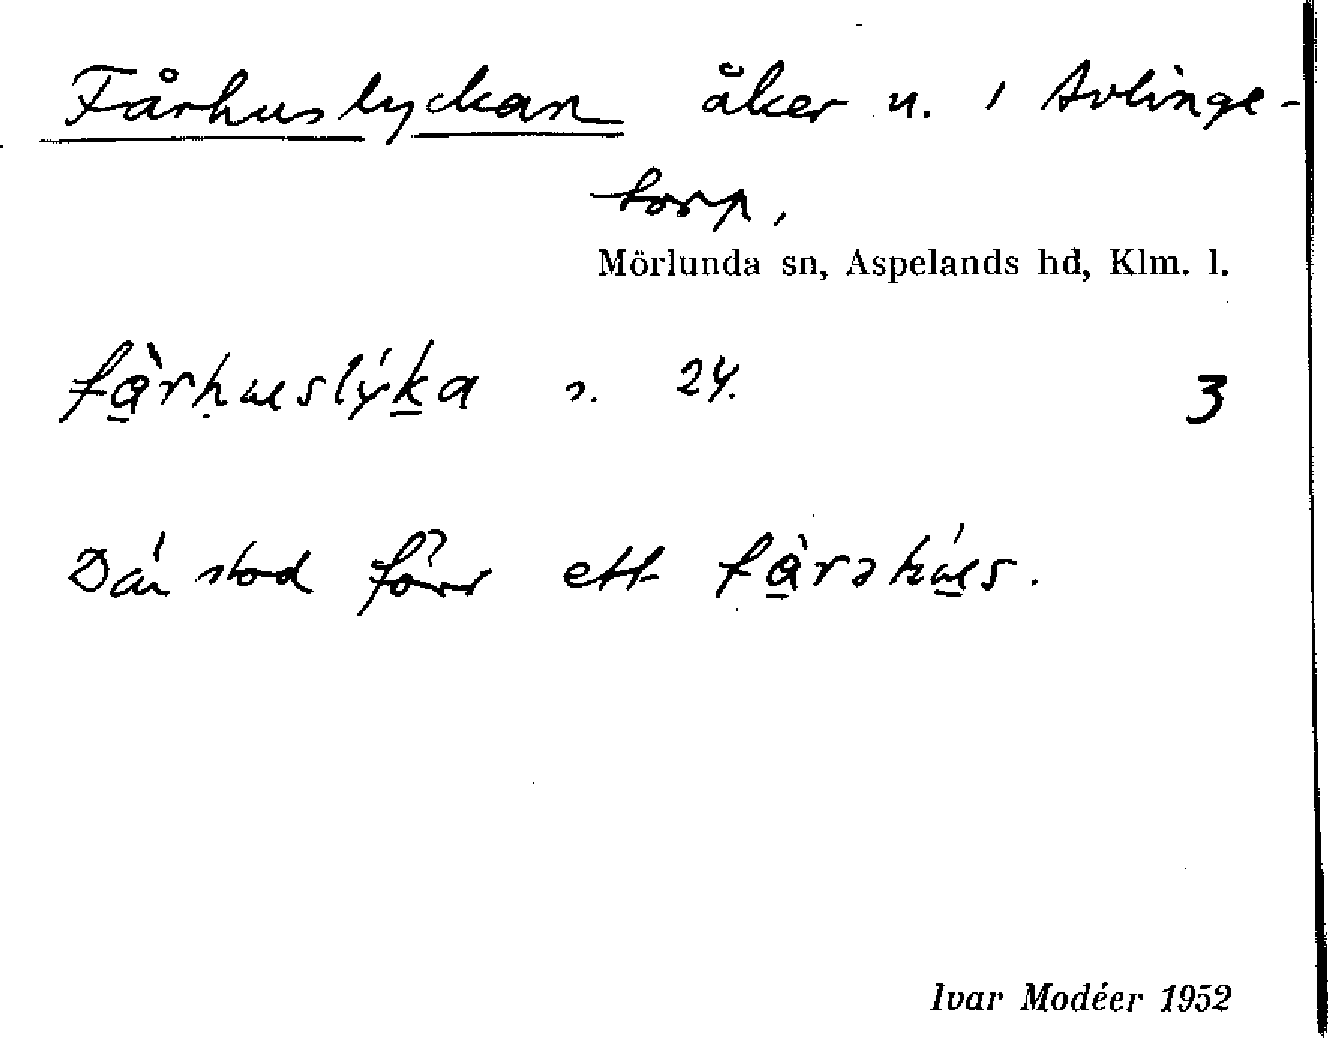 Fårhuslyckan åker n. i Avlinge-
torp,
Mörlunda sn, Aspelands hd, Klm. l.
fàrhuslýka s. 24. 3
Där stod förr ett fàrəhús.
Ivar Modéer 1952